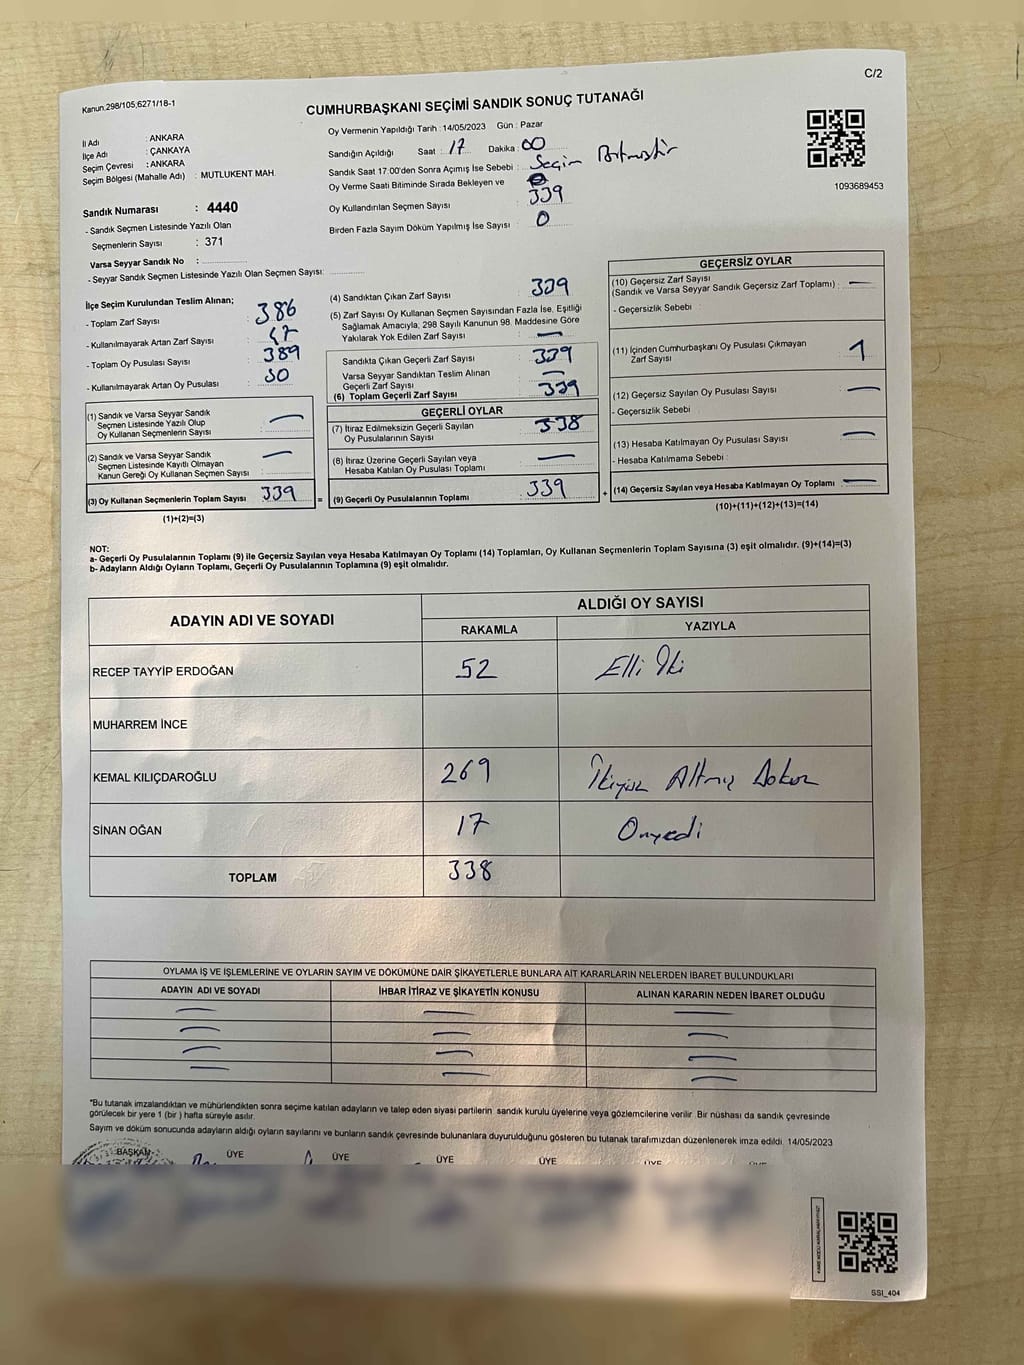 Kanun.298/105;6271/18-1
C/2
CUMHURBAŞKANI SEÇİMİ SANDIK SONUÇ TUTANAĞI
İl Adı : ANKARA
İlçe Adı : ÇANKAYA
Seçim Çevresi : ANKARA
Seçim Bölgesi (Mahalle Adı) : MUTLUKENT MAH.
Oy Vermenin Yapıldığı Tarih : 14/05/2023 Gün : Pazar
Sandığın Açıldığı Saat : 17 Dakika : 00
Sandık Saat 17:00'den Sonra Açımış İse Sebebi : Seçim Bitmiştir
Oy Verme Saati Bitiminde Sırada Bekleyen ve
Oy Kullandırılan Seçmen Sayısı 339
Birden Fazla Sayım Döküm Yapılmış İse Sayısı : 0
1093689453
Sandık Numarası : 4440
- Sandık Seçmen Listesinde Yazılı Olan
Seçmenlerin Sayısı : 371
Varsa Seyyar Sandık No :
- Seyyar Sandık Seçmen Listesinde Yazılı Olan Seçmen Sayısı:
İlçe Seçim Kurulundan Teslim Alınan;
- Toplam Zarf Sayısı : 386
- Kullanılmayarak Artan Zarf Sayısı : 47
- Toplam Oy Pusulası Sayısı : 389
- Kullanılmayarak Artan Oy Pusulası : 50
(1) Sandık ve Varsa Seyyar Sandık
Seçmen Listesinde Yazılı Olup
Oy Kullanan Seçmenlerin Sayısı : —
(2) Sandık ve Varsa Seyyar Sandık
Seçmen Listesinde Kayıtlı Olmayan
Kanun Gereği Oy Kullanan Seçmen Sayısı : —
(3) Oy Kullanan Seçmenlerin Toplam Sayısı 339 =
(1)+(2)=(3)
(4) Sandıktan Çıkan Zarf Sayısı : 339
(5) Zarf Sayısı Oy Kullanan Seçmen Sayısından Fazla İse, Eşitliği
Sağlamak Amacıyla, 298 Sayılı Kanunun 98. Maddesine Göre
Yakılarak Yok Edilen Zarf Sayısı : —
Sandıkta Çıkan Geçerli Zarf Sayısı : 339
Varsa Seyyar Sandıktan Teslim Alınan
Geçerli Zarf Sayısı : —
(6) Toplam Geçerli Zarf Sayısı : 339
GEÇERLİ OYLAR
(7) İtiraz Edilmeksizin Geçerli Sayılan
Oy Pusulalarının Sayısı : 338
(8) İtiraz Üzerine Geçerli Sayılan veya
Hesaba Katılan Oy Pusulası Toplamı : —
(9) Geçerli Oy Pusulalarının Toplamı : 339 +
GEÇERSİZ OYLAR
(10) Geçersiz Zarf Sayısı
(Sandık ve Varsa Seyyar Sandık Geçersiz Zarf Toplamı) : —
- Geçersizlik Sebebi
(11) İçinden Cumhurbaşkanı Oy Pusulası Çıkmayan
Zarf Sayısı : 1
(12) Geçersiz Sayılan Oy Pusulası Sayısı : —
- Geçersizlik Sebebi
(13) Hesaba Katılmayan Oy Pusulası Sayısı : —
- Hesaba Katılmama Sebebi :
(14) Geçersiz Sayılan veya Hesaba Katılmayan Oy Toplamı : —
(10)+(11)+(12)+(13)=(14)
NOT:
a- Geçerli Oy Pusulalarının Toplamı (9) ile Geçersiz Sayılan veya Hesaba Katılmayan Oy Toplamı (14) Toplamları, Oy Kullanan Seçmenlerin Toplam Sayısına (3) eşit olmalıdır. (9)+(14)=(3)
b- Adayların Aldığı Oyların Toplamı, Geçerli Oy Pusulalarının Toplamına (9) eşit olmalıdır.
ADAYIN ADI VE SOYADI
ALDIĞI OY SAYISI
RAKAMLA YAZIYLA
RECEP TAYYİP ERDOĞAN 52 Elli İki
MUHARREM İNCE
KEMAL KILIÇDAROĞLU 269 İkiyüz Altmış Dokuz
SİNAN OĞAN 17 Onyedi
TOPLAM 338
OYLAMA İŞ VE İŞLEMLERİNE VE OYLARIN SAYIM VE DÖKÜMÜNE DAİR ŞİKAYETLERLE BUNLARA AİT KARARLARIN NELERDEN İBARET BULUNDUKLARI
ADAYIN ADI VE SOYADI İHBAR İTİRAZ VE ŞİKAYETİN KONUSU ALINAN KARARIN NEDEN İBARET OLDUĞU
— — —
— — —
— — —
— — —
*Bu tutanak imzalandıktan ve mühürlendikten sonra seçime katılan adayların ve talep eden siyasi partilerin sandık kurulu üyelerine veya gözlemcilerine verilir. Bir nüshası da sandık çevresinde
görülecek bir yere 1 (bir ) hafta süreyle asılır.
Sayım ve döküm sonucunda adayların aldığı oyların sayılarını ve bunların sandık çevresinde bulunanlara duyurulduğunu gösteren bu tutanak tarafımızdan düzenlenerek imza edildi. 14/05/2023
BAŞKAN ÜYE ÜYE ÜYE ÜYE ÜYE
SSI_404